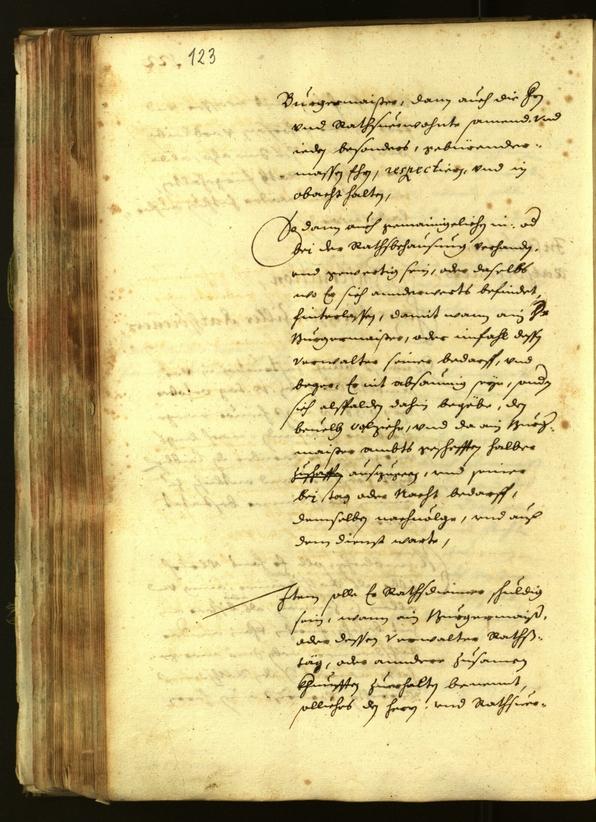 123
Burgermaister, dann auch die Hrn
vnd Rathsuerwohnte samend. vnd
ieden besonders, gebürender-
massen Ehrn, respectiern, vnd in
obacht halten,
So dann auch gemainigelichen in: od
bei der Rathsbehausung verhanden.
vnd gewertig sein, oder daselbs
wo Er sich annderwerts befindet,
hinterlassen, damit wann ain Hr
Burgermaister, oder imfahl dessen
Verwalter seiner bedarff, vnd
beger, Er nit absaumig seye, sonder
sich alsbalden dahin begebe, den
beuelch volziehe, vnd da ain Burg-
maister ambts geschefften halber
auszureiten, vnd seiner
bei tag oder Nacht bedarff,
demselben nachuolge, vnd auf
dem dienst warte,
Item solle Er Rathsdiener schuldig
sein, wann ain Burgermaister,
oder dessen Verwalter Raths-
täg, oder anndere Zusamen
Khunfften zuerhalten benennt,
solliches den herrn: vnd Rathsuer-